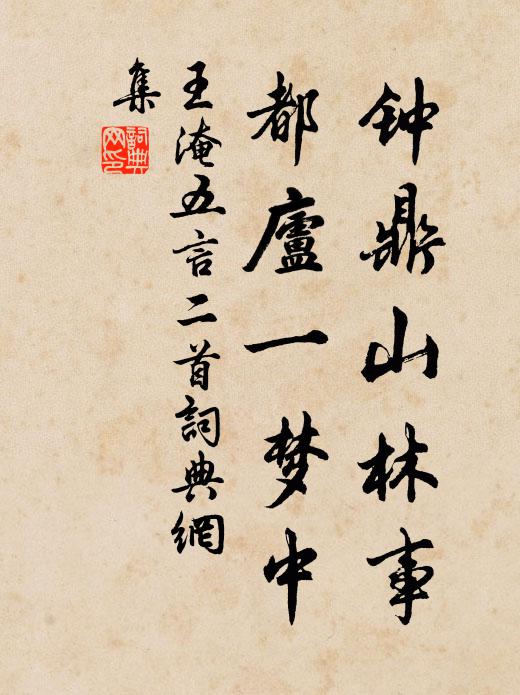 钟鼎山林事
都廬一梦中
王淹五言二首詞典網
集
詞典
网印